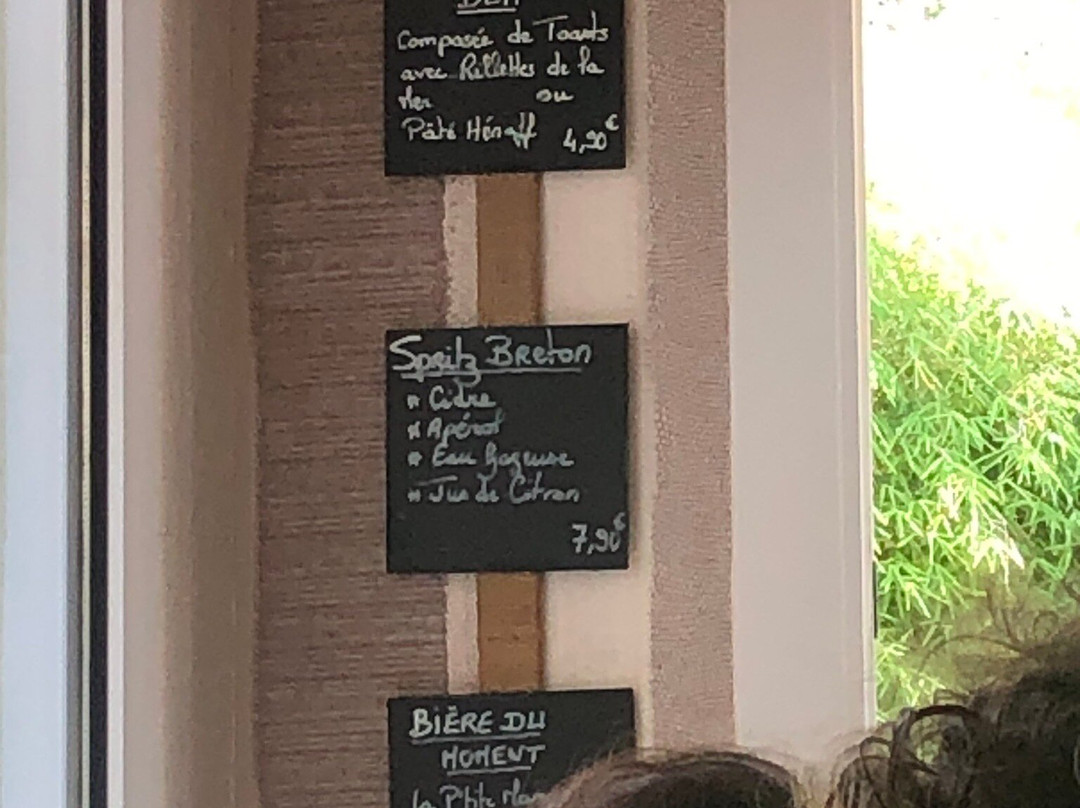 Composée de Toasts
avec Rillettes de la
Mer ou
Pâté Hénaff 4,90€
Spritz Breton
* Cidre
* Apérol
* Eau Gazeuse
* Jus de Citron
7,90€
BIÈRE DU
MOMENT
la P'tite